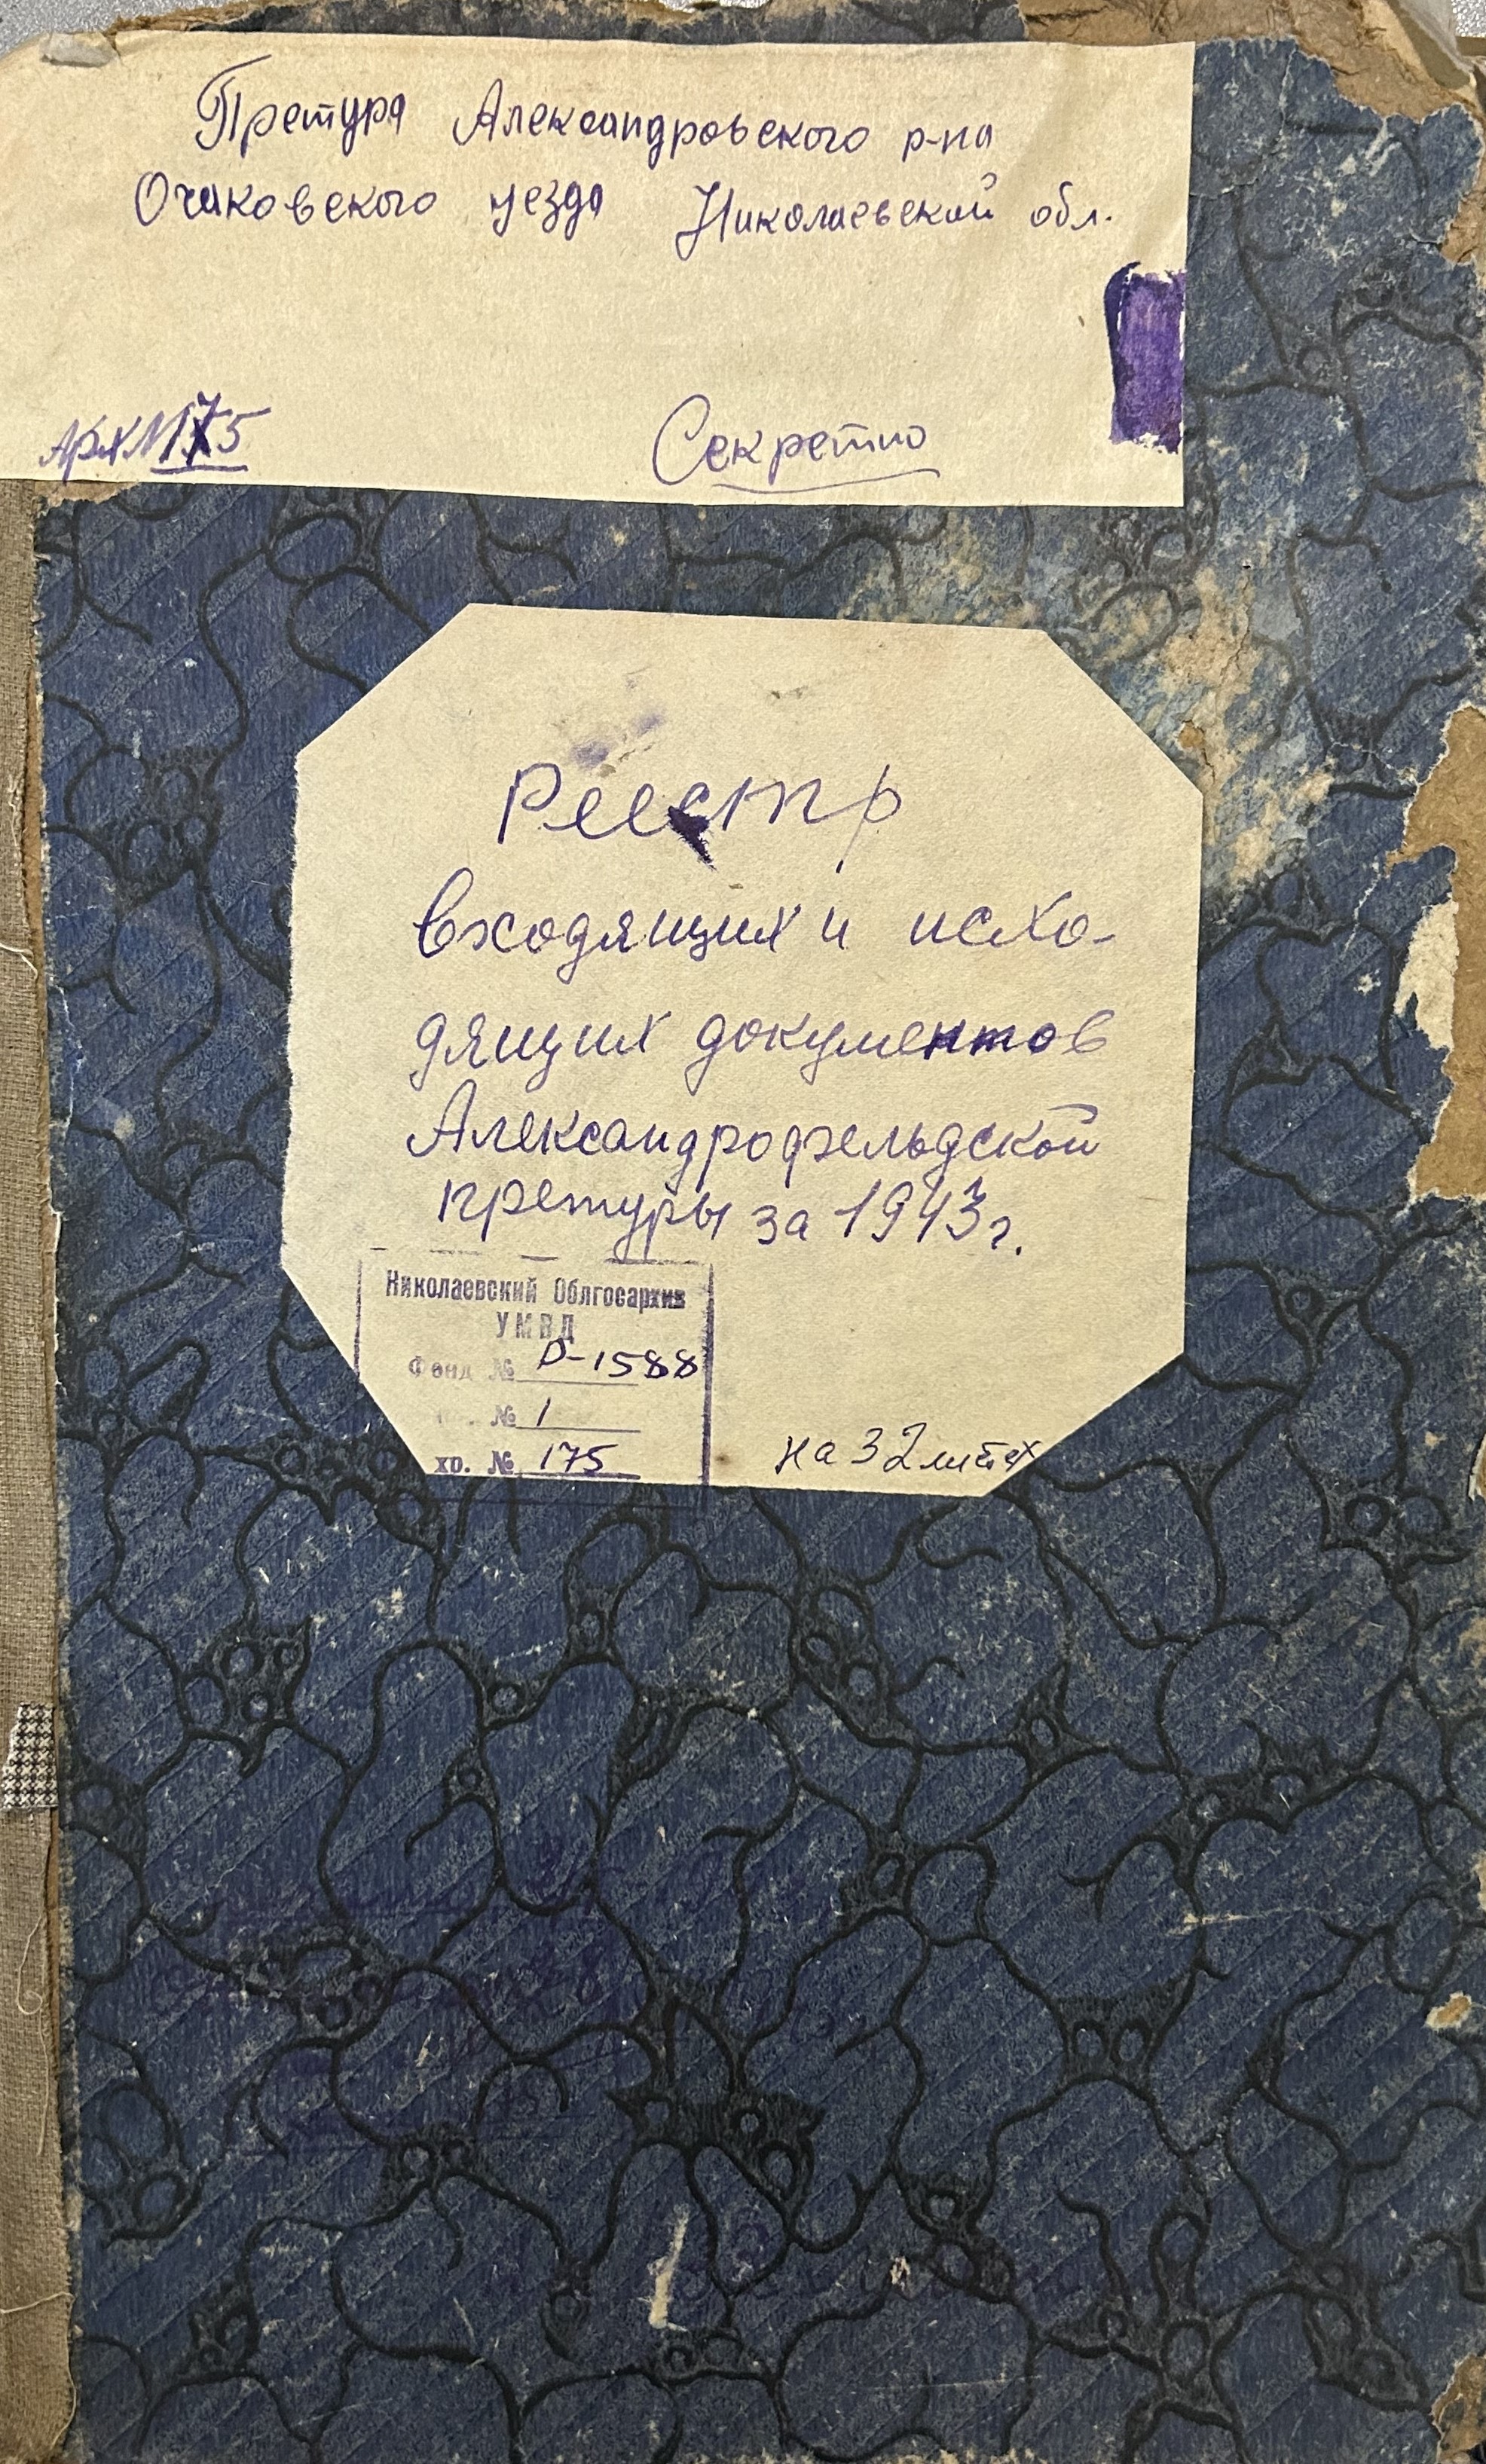 Претура Александровского р-на
Очаковского уезда Николаевской обл.
Арх №175
Секретно
Реестр
входящих и исхо-
дящих документов
Александрофельдской
претуры за 1943 г.
Николаевский Облгосархив
УМВД
Фонд № Р-1588
№ 1
хр. № 175
на 32 листах